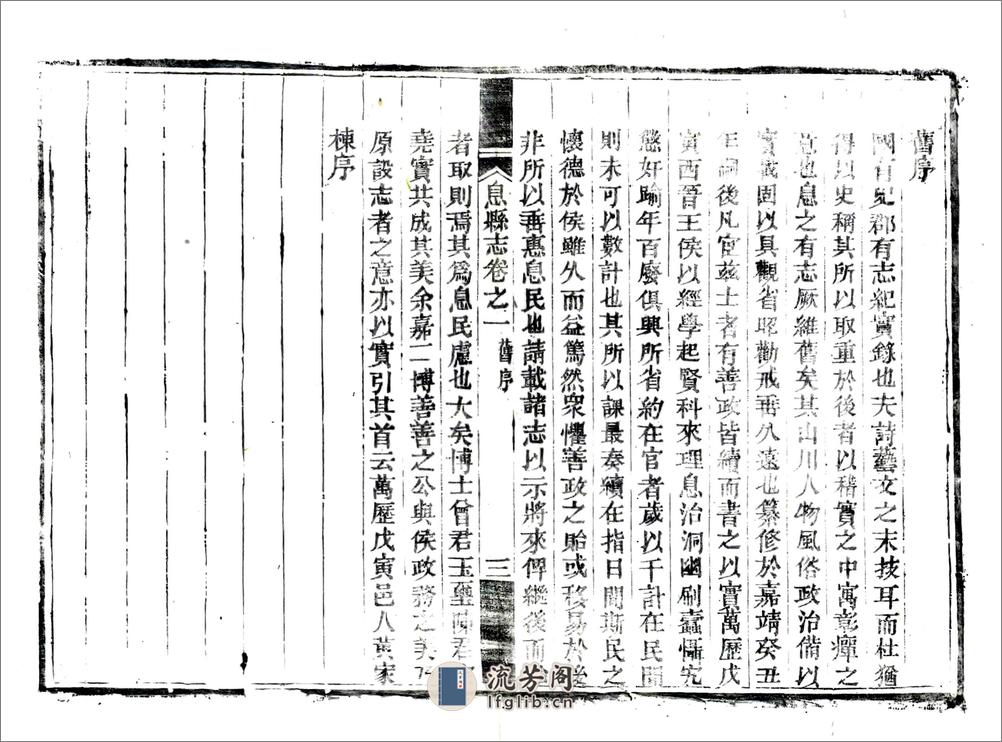 舊序
國有史郡有志紀實錄也夫詩藝文之末技耳而杜猶
得以史稱其所以取重於後者以稽實之中寓彰癉之
意也息之有志厥維舊矣其山川人物風俗政治備以
實載固以具觀省昭勸戒垂久遠也纂修於嘉靖癸丑
年嗣後凡官茲土者有善政皆續而書之以實萬歷戊
寅西晉王侯以經學起賢科來理息治洞幽刷蠹懾宄
懲奸踰年百廢俱興所省約在官者歲以千計在民間
則未可以數計也其所以課最奏績在指日間斯民之
懷德於侯雖久而益篤然衆懼善政之貽或移易於後
非所以垂惠息民也請載諸志以示將來俾繼後而
息縣志卷之一 舊序 三
者取則焉其爲息民慮也大矣博士曾君玉璽陳君
堯實共成其美余嘉二博善善之公與侯政務之美
原設志者之意亦以實引其首云萬歷戊寅邑人黃家
棟序
流芳阁
lfglib.cn